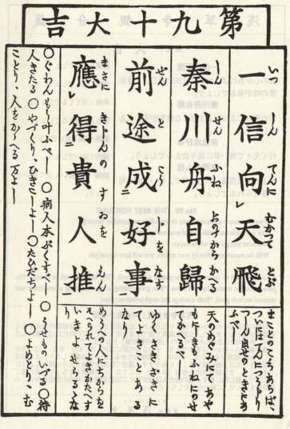 第九十大吉
一信向天飛
いつしんてんにむかつてとぶ
まことのこゝろあらば、
ついにはてんにつうじり
つしん出せのときにあ
ふべし
秦川舟自歸
しんせんふねおのづからかへる
天のめぐみにてあや
もにしきもふねにのせ
てかへるべし
前途成好事
ぜんとこうじをなす
ゆくさきざきに
てよきことある
なり
應得貴人推
まさにきにんのすゐをえん
めうへの人にちからを
そへられてよきかたへす
いきよせらるゝな
り
○ぐわんもう叶ふべし ○病人本ぷくすべし ○うせものいづる ○待
人きたる ○やづくり、ひきこしよし ○たびだちよし ○よめとり、む
ことり、人をかゝへる万よし